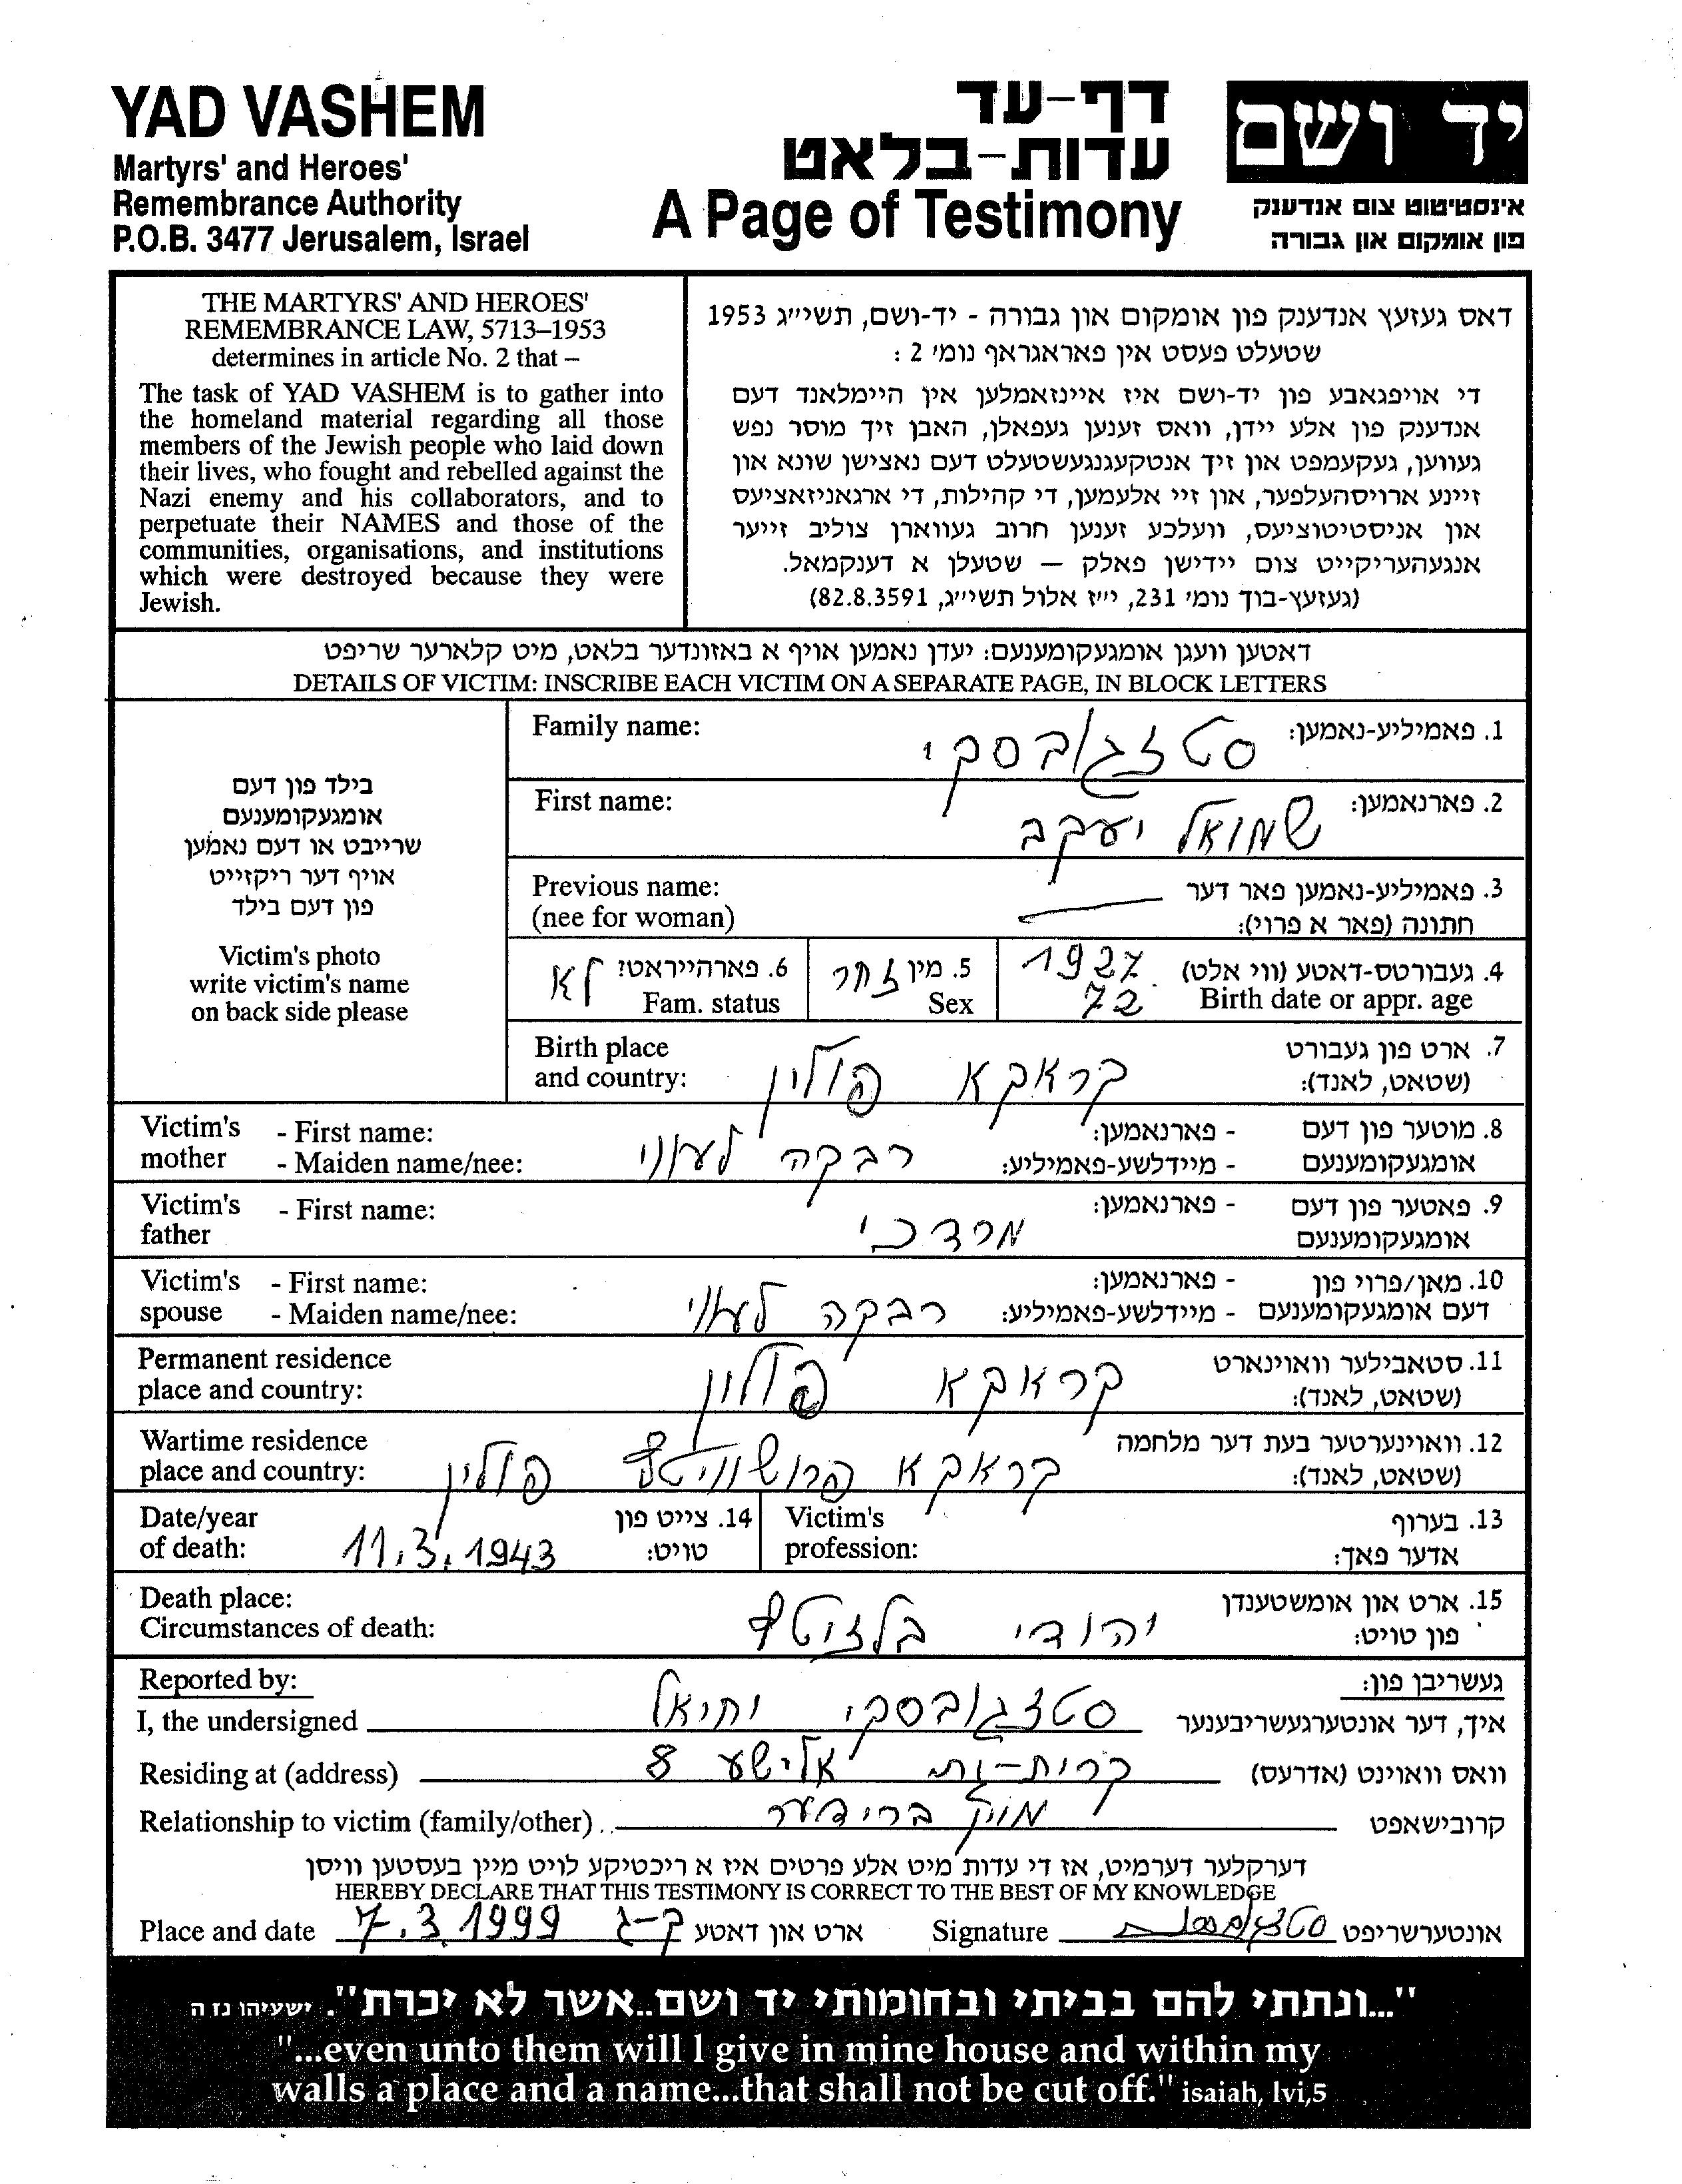 YAD VASHEM
Martyrs' and Heroes'
Remembrance Authority
P.O.B. 3477 Jerusalem, Israel
דף-עד
עדות-בלאט
A Page of Testimony
יד ושם
אינסטיטוט צום אנדענק
פון אומקום און גבורה
THE MARTYRS' AND HEROES'
REMEMBRANCE LAW, 5713–1953
determines in article No. 2 that –
The task of YAD VASHEM is to gather into
the homeland material regarding all those
members of the Jewish people who laid down
their lives, who fought and rebelled against the
Nazi enemy and his collaborators, and to
perpetuate their NAMES and those of the
communities, organisations, and institutions
which were destroyed because they were
Jewish.
דאס געזעץ אנדענק פון אומקום און גבורה - יד-ושם, תשי״ג 1953
שטעלט פעסט אין פאראגראף נומ׳ 2 :
די אויפגאבע פון יד-ושם איז איינזאמלען אין היימלאנד דעם
אנדענק פון אלע יידן, וואס זענען געפאלן, האבן זיך מוסר נפש
געווען, געקעמפט און זיך אנטקעגנגעשטעלט דעם נאצישן שונא און
זיינע ארויסהעלפער, און זיי אלעמען, די קהילות, די ארגאניזאציעס
און אניסטיטוציעס, וועלכע זענען חרוב געווארן צוליב זייער
אנגעהעריקייט צום יידישן פאלק — שטעלן א דענקמאל.
(געזעץ-בוך נומ׳ 231, י״ז אלול תשי״ג, 82.8.3591)
דאטען וועגן אומגעקומענעם: יעדן נאמען אויף א באזונדער בלאט, מיט קלארער שריפט
DETAILS OF VICTIM: INSCRIBE EACH VICTIM ON A SEPARATE PAGE, IN BLOCK LETTERS
בילד פון דעם
אומגעקומענעם
שרייבט או דעם נאמען
אויף דער ריקזייט
פון דעם בילד
Victim's photo
write victim's name
on back side please
Family name: סטזגובסקי 1. פאמיליע-נאמען:
First name: שמואל יעקב 2. פארנאמען:
Previous name: 3. פאמיליע-נאמען פאר דער
(nee for woman) חתונה (פאר א פרוי):
4. געבורטס-דאטע (ווי אלט) 1927
Birth date or appr. age 72
5. מין זכר
Sex
6. פארהייראט? לא
Fam. status
Birth place 7. ארט פון געבורט
and country: קראקא פולין (שטאט, לאנד):
Victim's - First name: - פארנאמען: 8. מוטער פון דעם
mother - Maiden name/nee: רבקה לעווי - מיידלשע-פאמיליע: אומגעקומענעם
Victim's - First name: - פארנאמען: 9. פאטער פון דעם
father מרדכי אומגעקומענעם
Victim's - First name: - פארנאמען: 10. מאן/פרוי פון
spouse - Maiden name/nee: רבקה לעווי - מיידלשע-פאמיליע: דעם אומגעקומענעם
Permanent residence 11. סטאבילער וואוינארט
place and country: קראקא פולין (שטאט, לאנד):
Wartime residence 12. וואוינערטער בעת דער מלחמה
place and country: קראקא פולין (שטאט, לאנד):
Date/year 14. צייט פון
of death: 11.3.1943 טויט:
Victim's 13. בערוף
profession: אדער פאך:
Death place: 15. ארט און אומשטענדן
Circumstances of death: יהודי פון טויט:
Reported by: געשריבן פון:
I, the undersigned סטזגובסקי יחיאל איך, דער אונטערגעשריבענער
Residing at (address) אלישע 8 וואס וואוינט (אדרעס)
Relationship to victim (family/other) ברידער קרובישאפט
דערקלער דערמיט, אז די עדות מיט אלע פרטים איז א ריכטיקע לויט מיין בעסטען וויסן
HEREBY DECLARE THAT THIS TESTIMONY IS CORRECT TO THE BEST OF MY KNOWLEDGE
Place and date 7.3.1999 ארט און דאטע Signature אונטערשריפט
"...ונתתי להם בביתי ובחומותי יד ושם..אשר לא יכרת". ישעיהו נז ה
"...even unto them will I give in mine house and within my
walls a place and a name...that shall not be cut off." isaiah, lvi,5